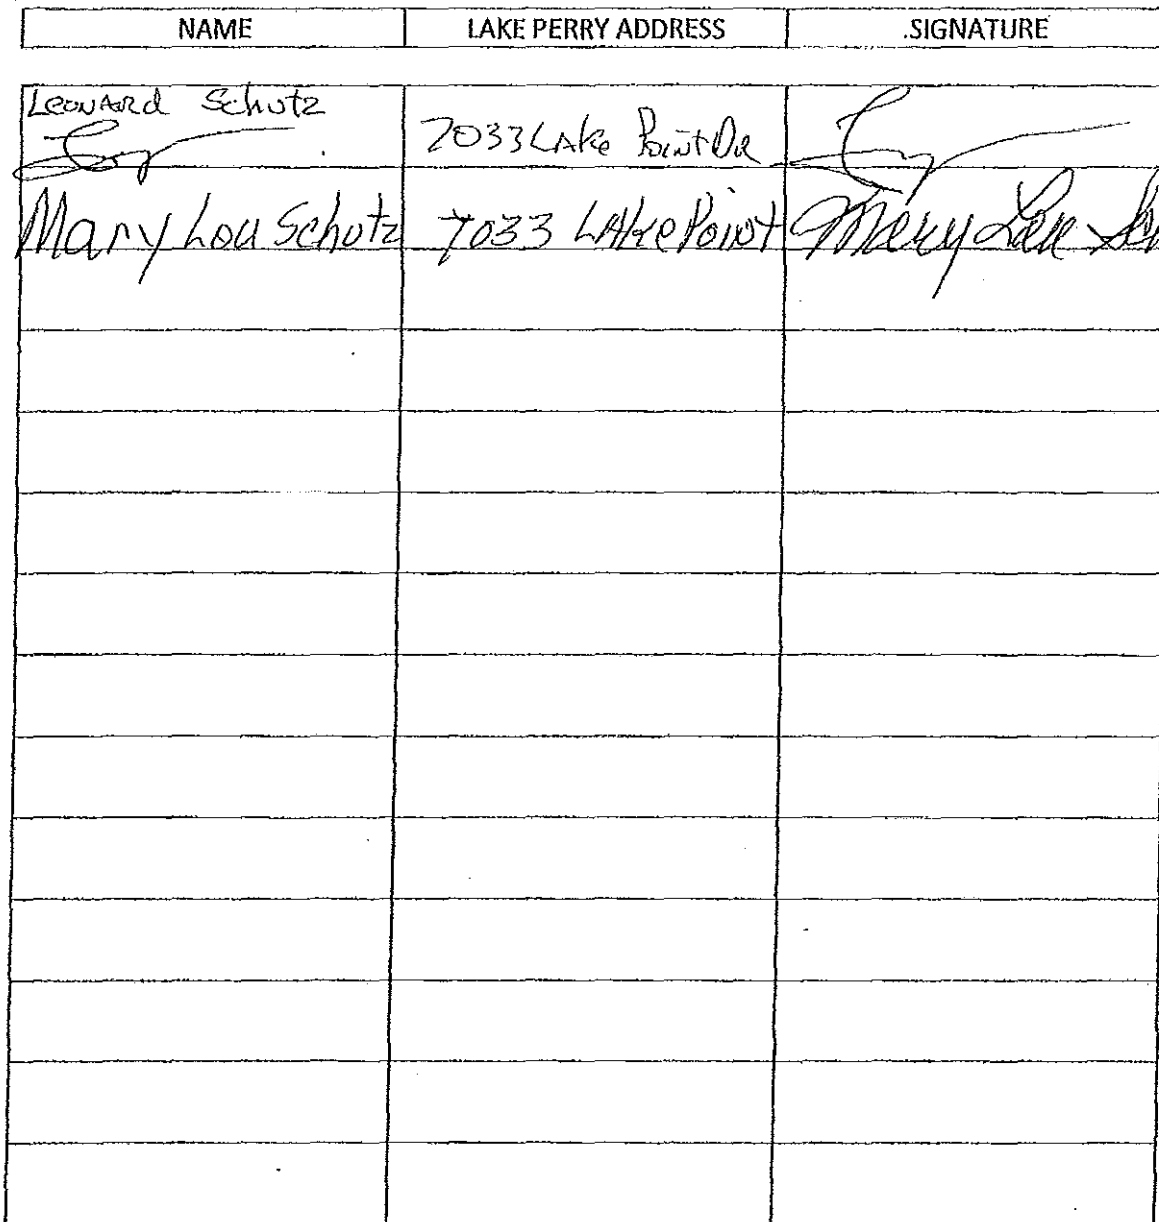 NAME LAKE PERRY ADDRESS .SIGNATURE
Leonard Schutz 7033 Lake Point Dr
Mary Lou Schutz 7033 Lake Point Mary Lou